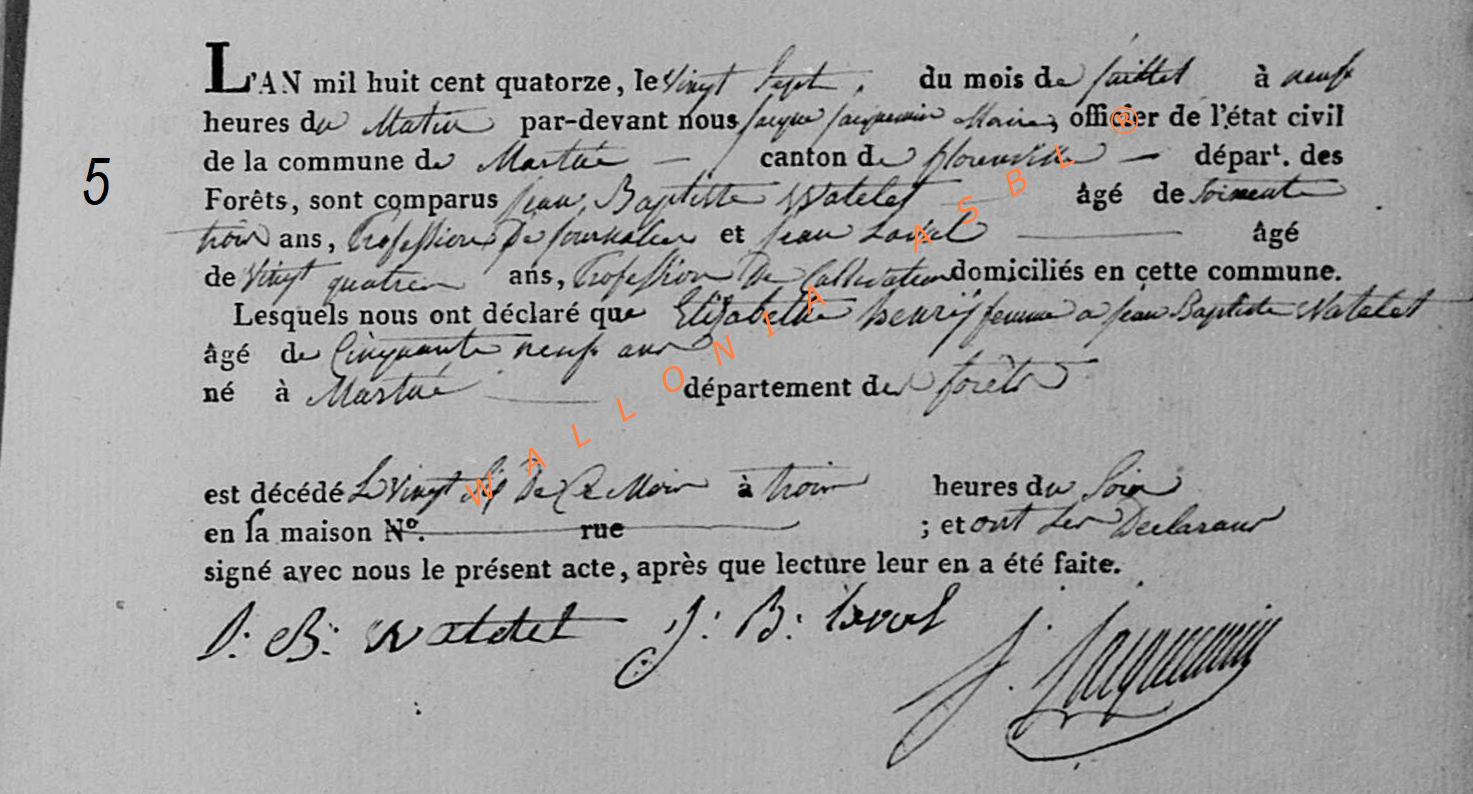 L'AN mil huit cent quatorze, le Vingt Sept du mois de juillet à neuf
heures du Matin par-devant nous jacque jacquemin Maire, officier de l'état civil
5
de la commune de Martué — canton de florenville — départ. des
Forêts, sont comparus jean Baptiste Watelet âgé de soixante
trois ans, Profession De journalier et jean Laval âgé
de Vingt quatre ans, Profession De Cultivateur domiciliés en cette commune.
Lesquels nous ont déclaré que Elisabethe henrij femme a jean Baptiste Watelet
âgé de Cinquante neuf ans
né à Martué département des forêts
est décédé Le Vingt Six De Ce Mois à trois heures du Soir
en sa maison N°. rue ; et ont Les Declarans
signé avec nous le présent acte, après que lecture leur en a été faite.
J: B: Watelet J: B: J. Jacquemin
WALLONIA ASBL ®